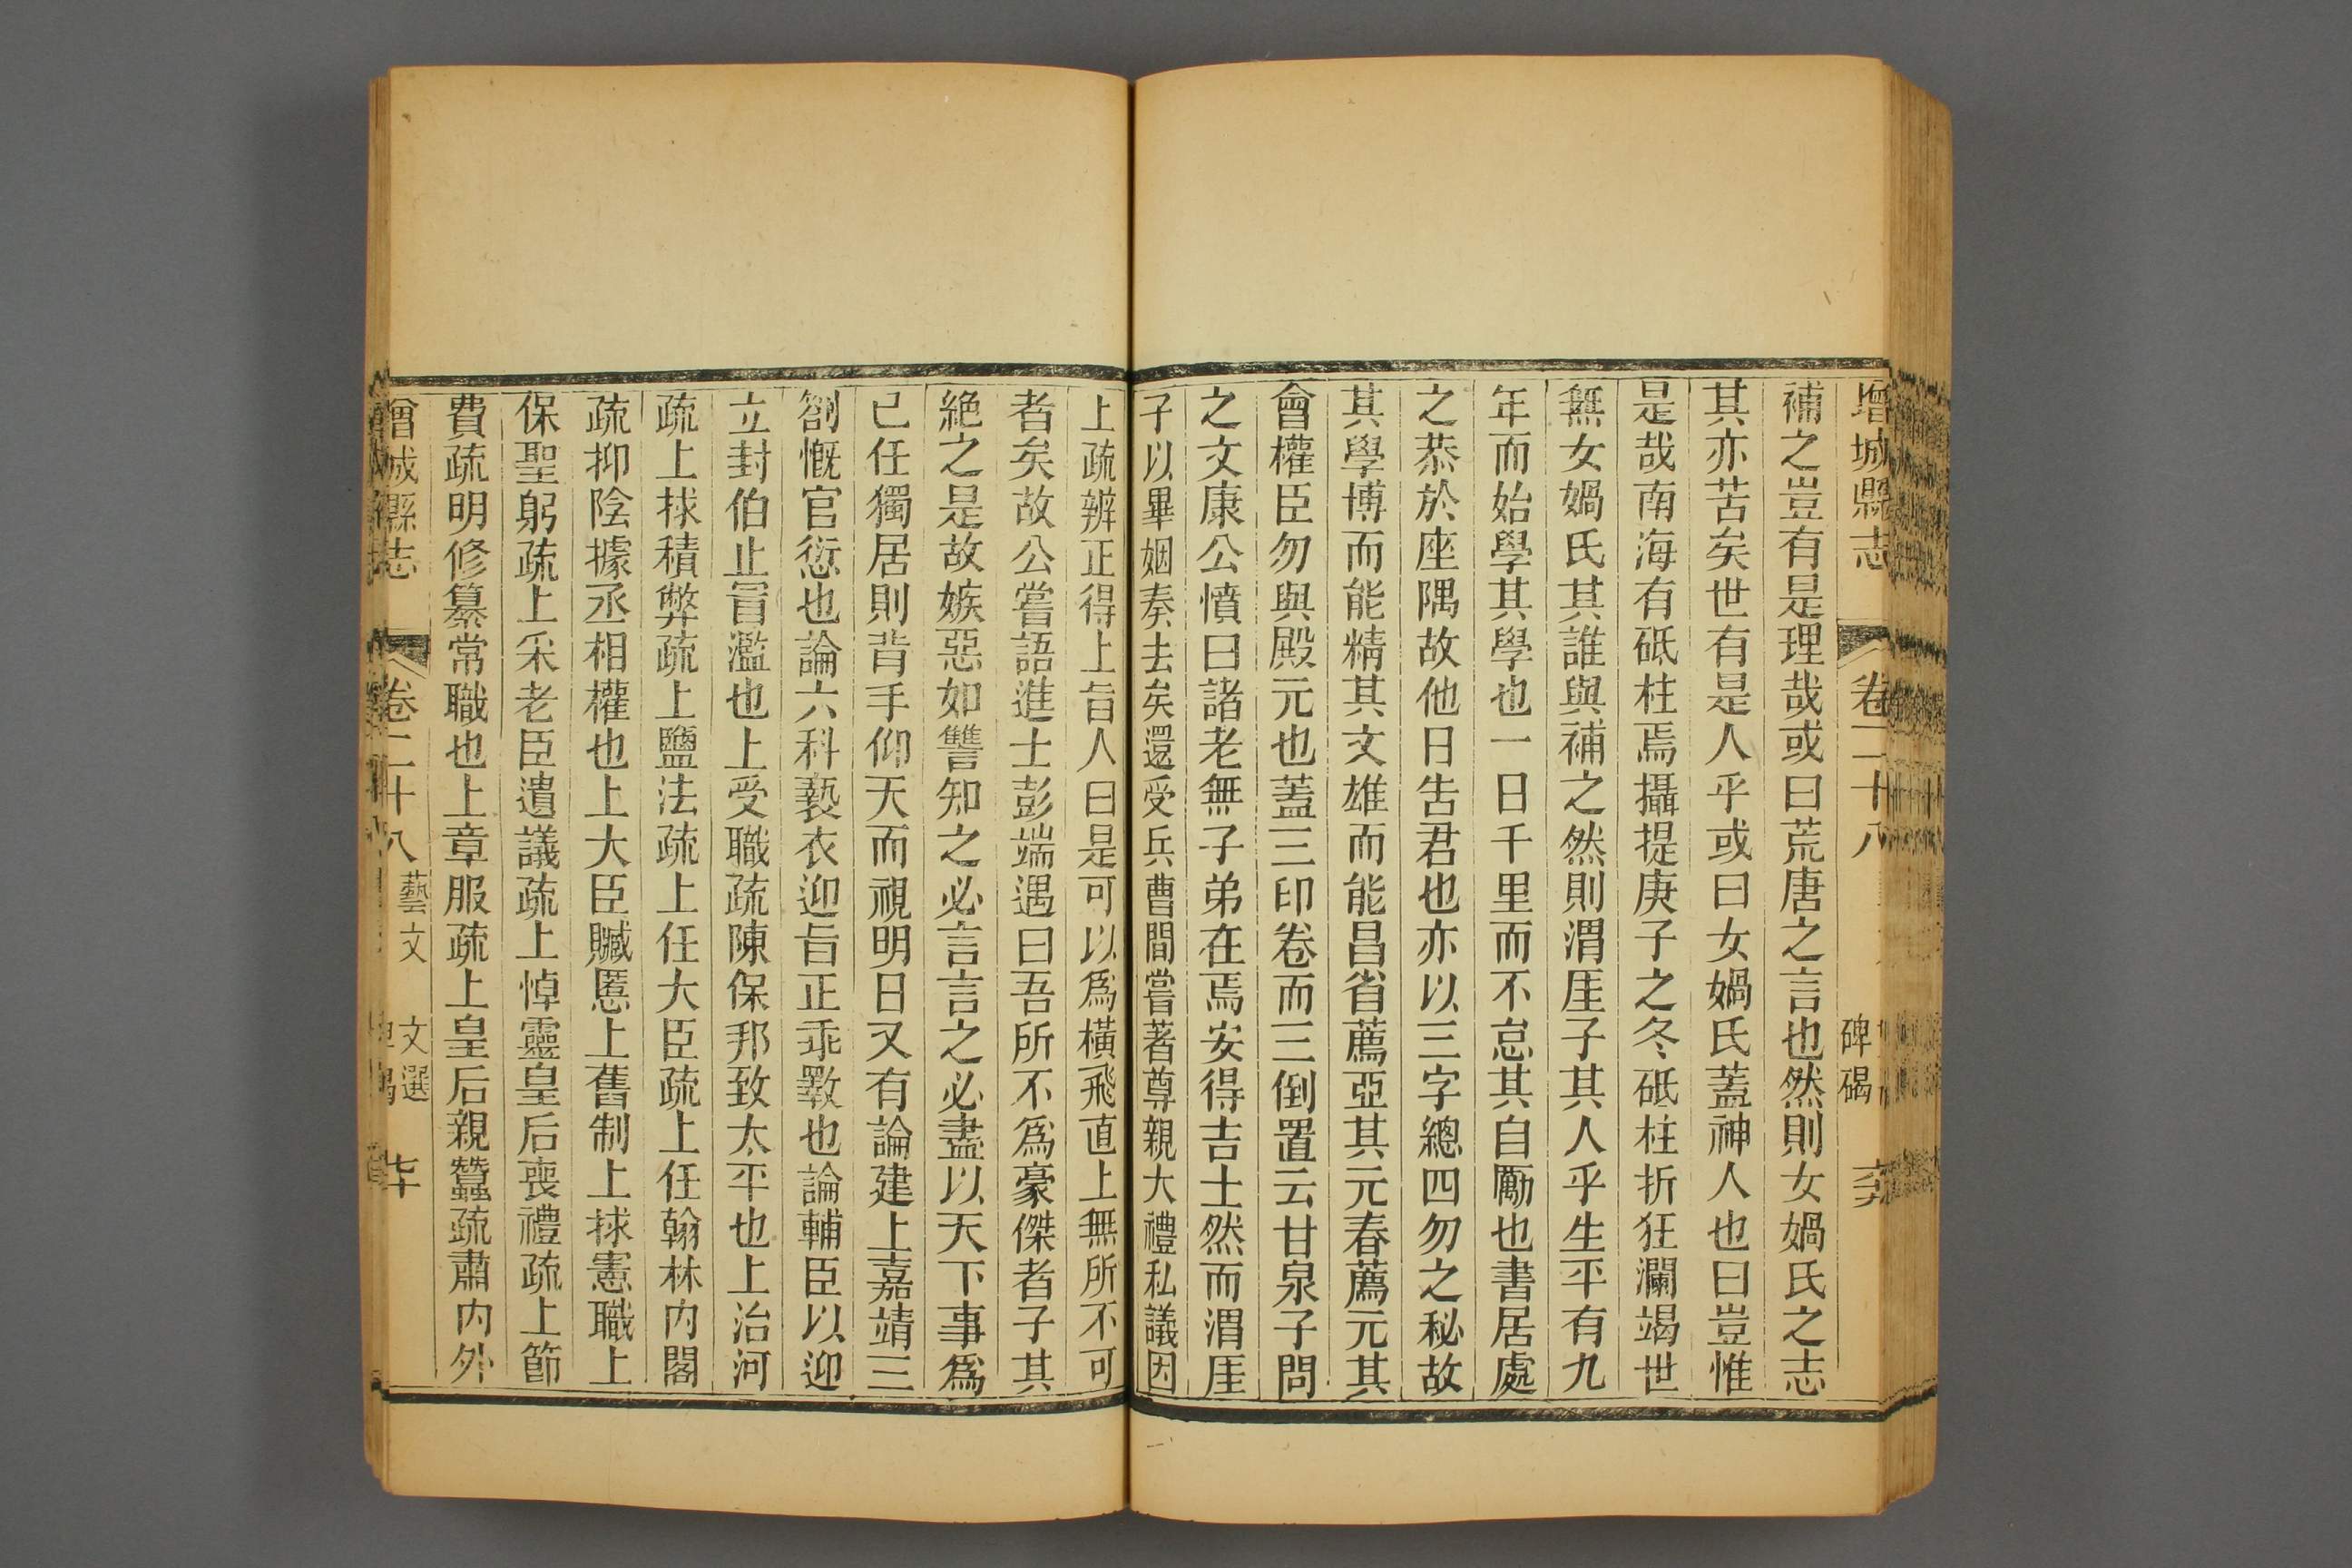 增城縣志 卷二十八 碑碣
補之豈有是理哉或曰荒唐之言也然則女媧氏之志
其亦苦矣世有是人乎或曰女媧氏蓋神人也曰豈惟
是哉南海有砥柱焉攝提庚子之冬砥柱折狂瀾竭世
無女媧氏其誰與補之然則渭厓子其人乎生平有九
年而始學其學也一日千里而不怠其自勵也書居處
之恭於座隅故他日告君也亦以三字總四勿之秘故
其學博而能精其文雄而能昌省薦亞其元春薦元其
會權臣勿與殿元也蓋三印卷而三倒置云甘泉子問
之文康公憤曰諸老無子弟在焉安得吉士然而渭厓
子以畢姻奏去矣還受兵曹間嘗著尊親大禮私議因
上疏辨正得上旨人曰是可以爲橫飛直上無所不可
者矣故公嘗語進士彭端遇曰吾所不爲豪傑者子其
絕之是故嫉惡如讐知之必言言之必盡以天下事爲
己任獨居則背手仰天而視明日又有論建上嘉靖三
劄慨官愆也論六科褻衣迎旨正乖斁也論輔臣以迎
立封伯止冒濫也上受職疏陳保邦致太平也上治河
疏上捄積弊疏上鹽法疏上任大臣疏上任翰林內閣
疏抑陰據丞相權也上大臣贓慝上舊制上捄憲職上
保聖躬疏上采老臣遺議疏上悼靈皇后喪禮疏上節
費疏明修纂常職也上章服疏上皇后親蠶疏肅內外
增城縣志 卷二十八 藝文 文選 碑碣 七十